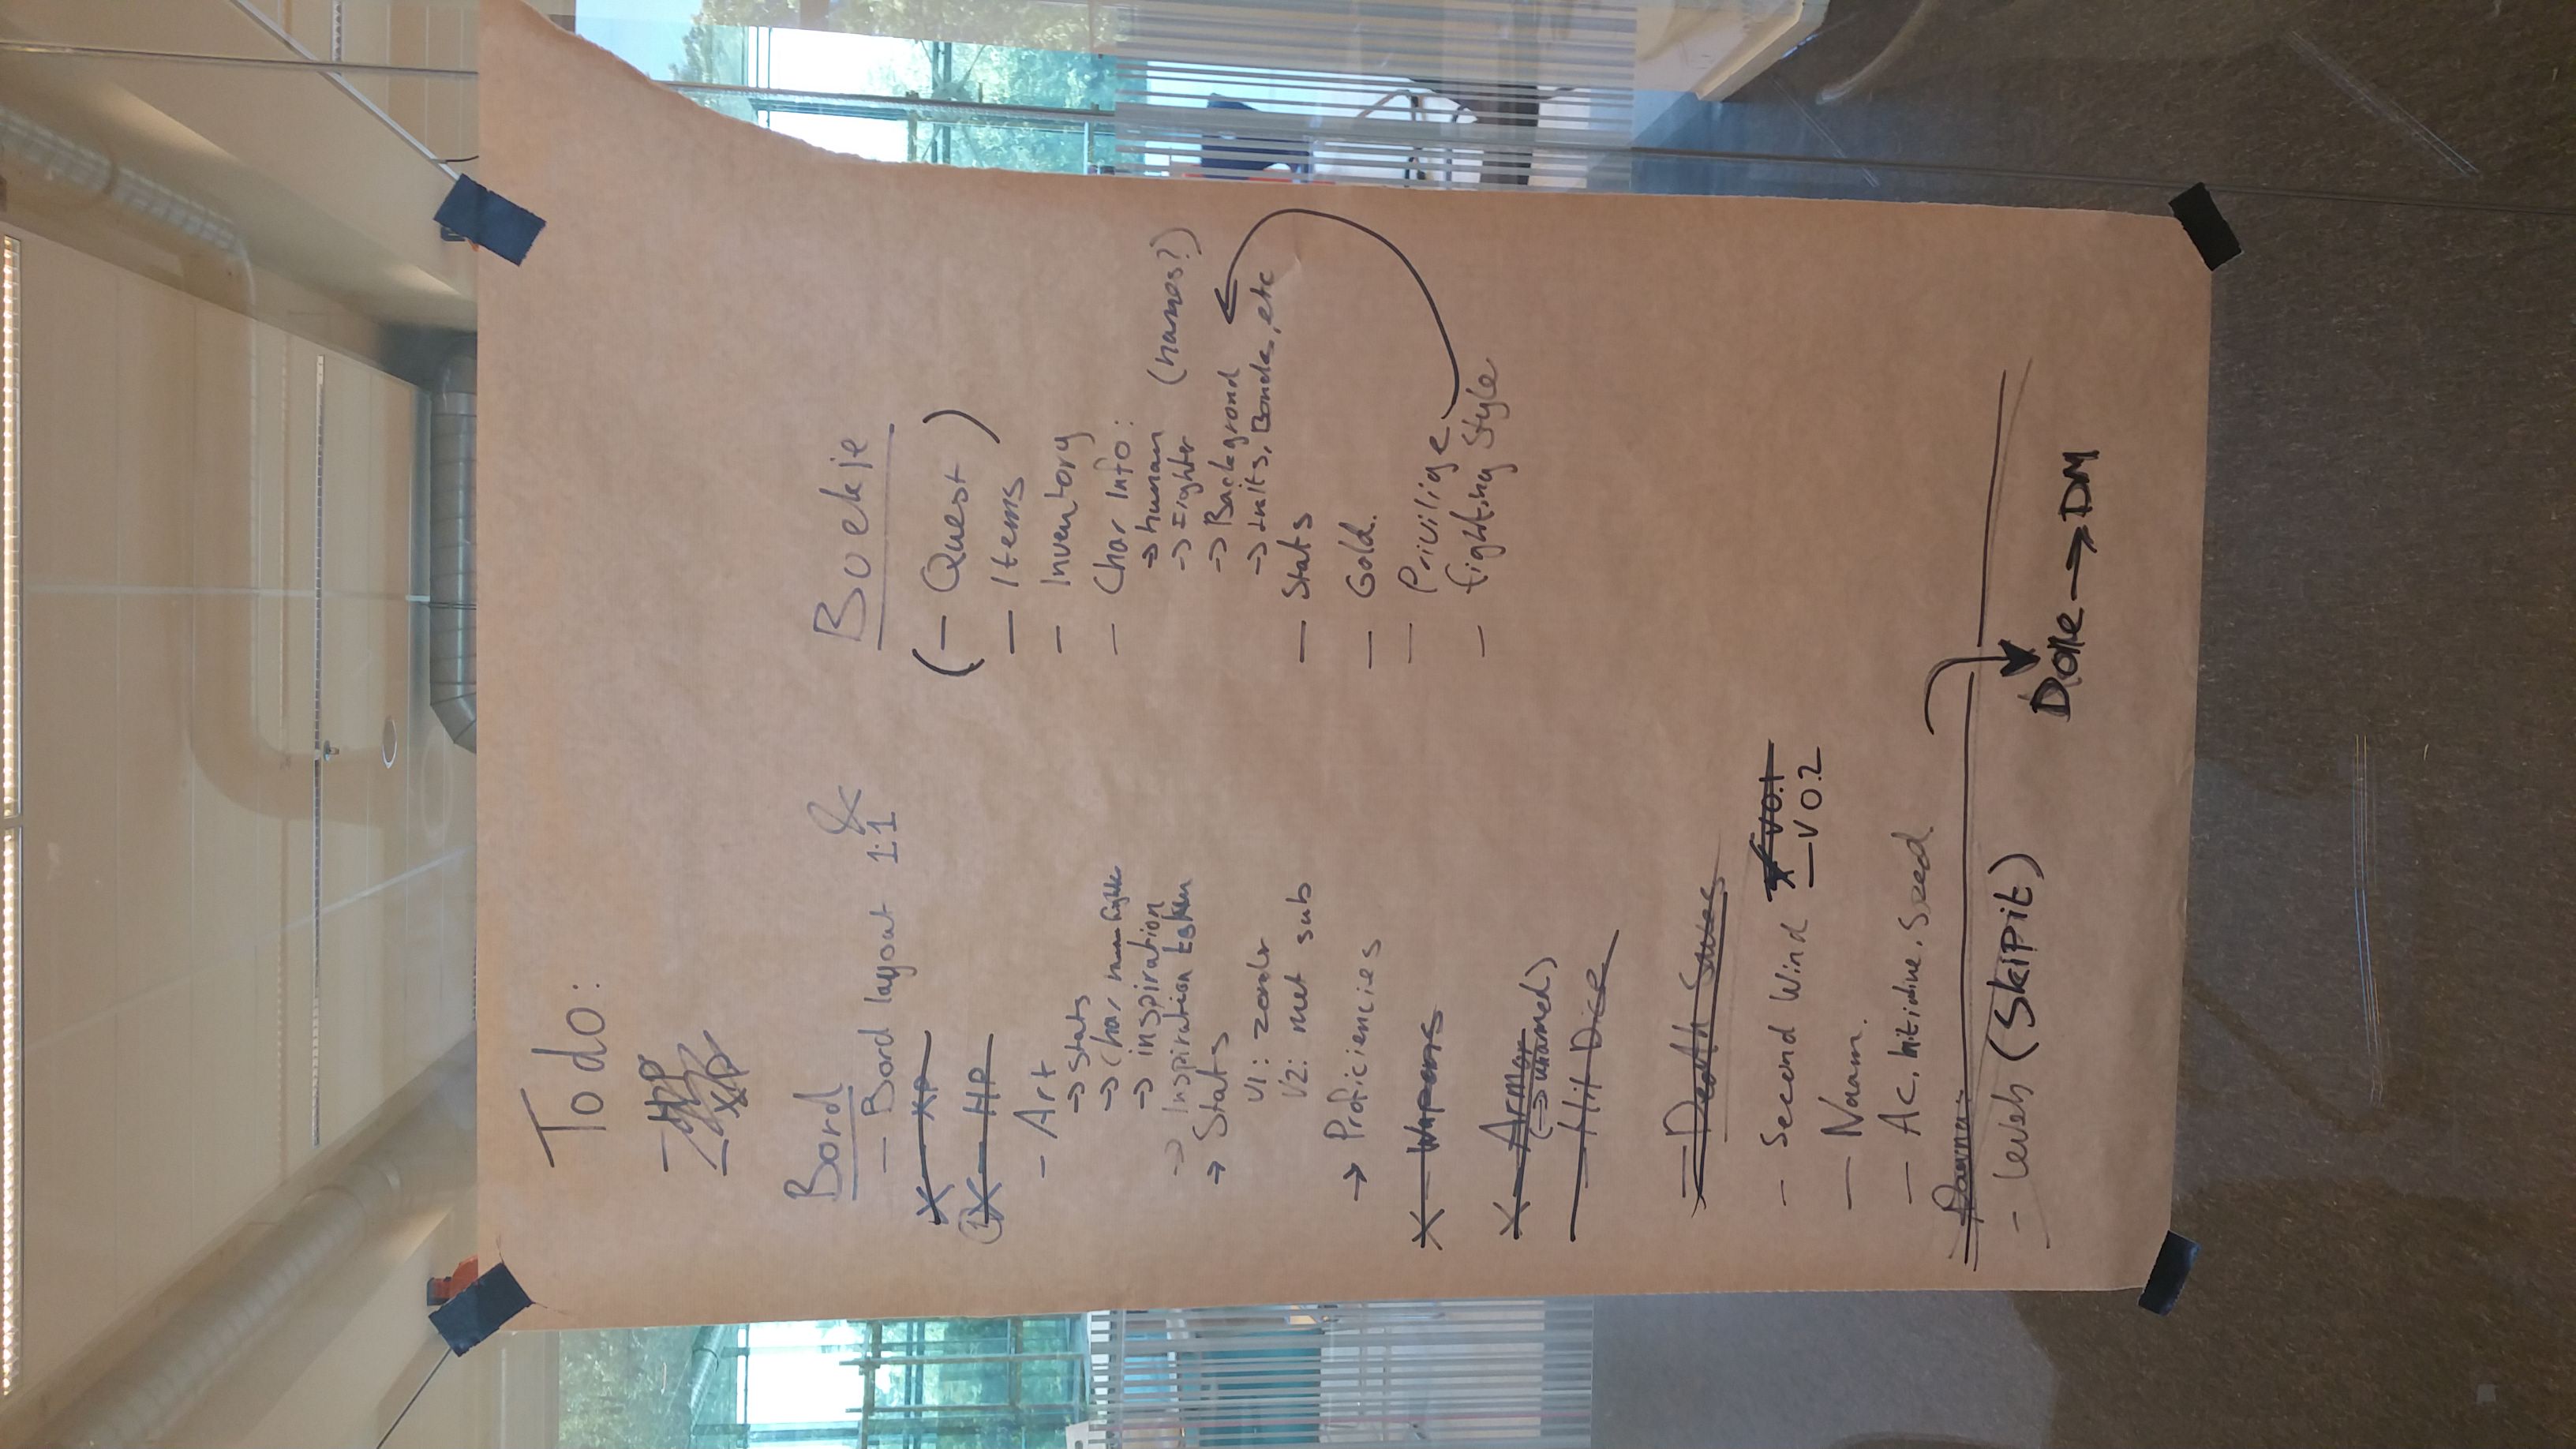 Todo:
- HP
- XP
Bord &
- Bord layout 1:1
X - XP
1 X - HP
- Art
-> Stats
-> Char human fighter
-> inspiration
-> Inspiration token
-> Stats
V1: zonder
V2: met sub
-> Proficiencies
X - Wapens
X - Armor
(-> unarmed)
- Hit Dice
- Death Saves
- Second Wind V0.1
- V0.2
- Naam.
- AC, Initiative, Speed
Daarna:
- levels (Skip it)
Boekje
(- Quest)
- Items
- Inventory
- Char Info:
-> human
-> Fighter (names?)
-> Backgrond
-> traits, Bondes, etc
- Stats
- Gold.
- Privilige
- fighting Style
Done -> DM